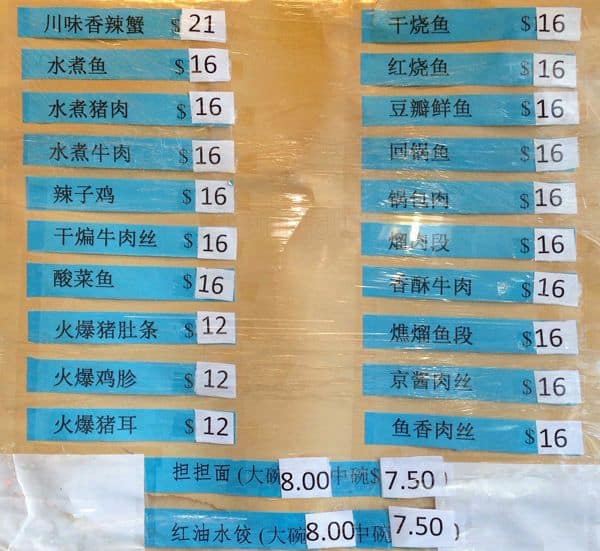 川味香辣蟹 $21
水煮鱼 $16
水煮猪肉 $16
水煮牛肉 $16
辣子鸡 $16
干煸牛肉丝 $16
酸菜鱼 $16
火爆猪肚条 $12
火爆鸡胗 $12
火爆猪耳 $12
干烧鱼 $16
红烧鱼 $16
豆瓣鲜鱼 $16
回锅鱼 $16
锅包肉 $16
熘肉段 $16
香酥牛肉 $16
熘鱼段 $16
京酱肉丝 $16
鱼香肉丝 $16
担担面 (大碗8.00中碗$7.50)
红油水饺 (大碗8.00中碗7.50)